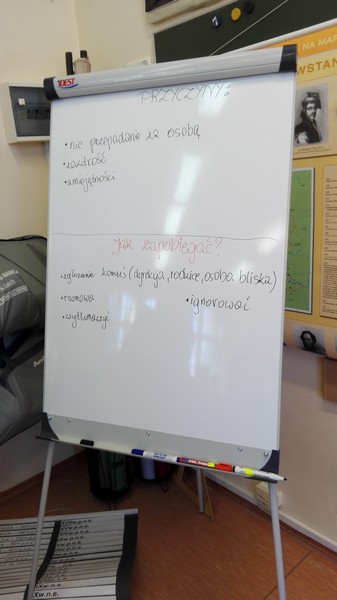 2DEST
PRZYCZYNY:
• nie przepadanie za osobą
• zazdrość
• umiejętności
Jak zapobiegać?
• zgłoszenie komuś (dyrekcja, rodzice, osoba bliska)
• rozmowa
• ignorować
• wytłumaczyć
NA MAP
WSTAN
Xw.n.e.